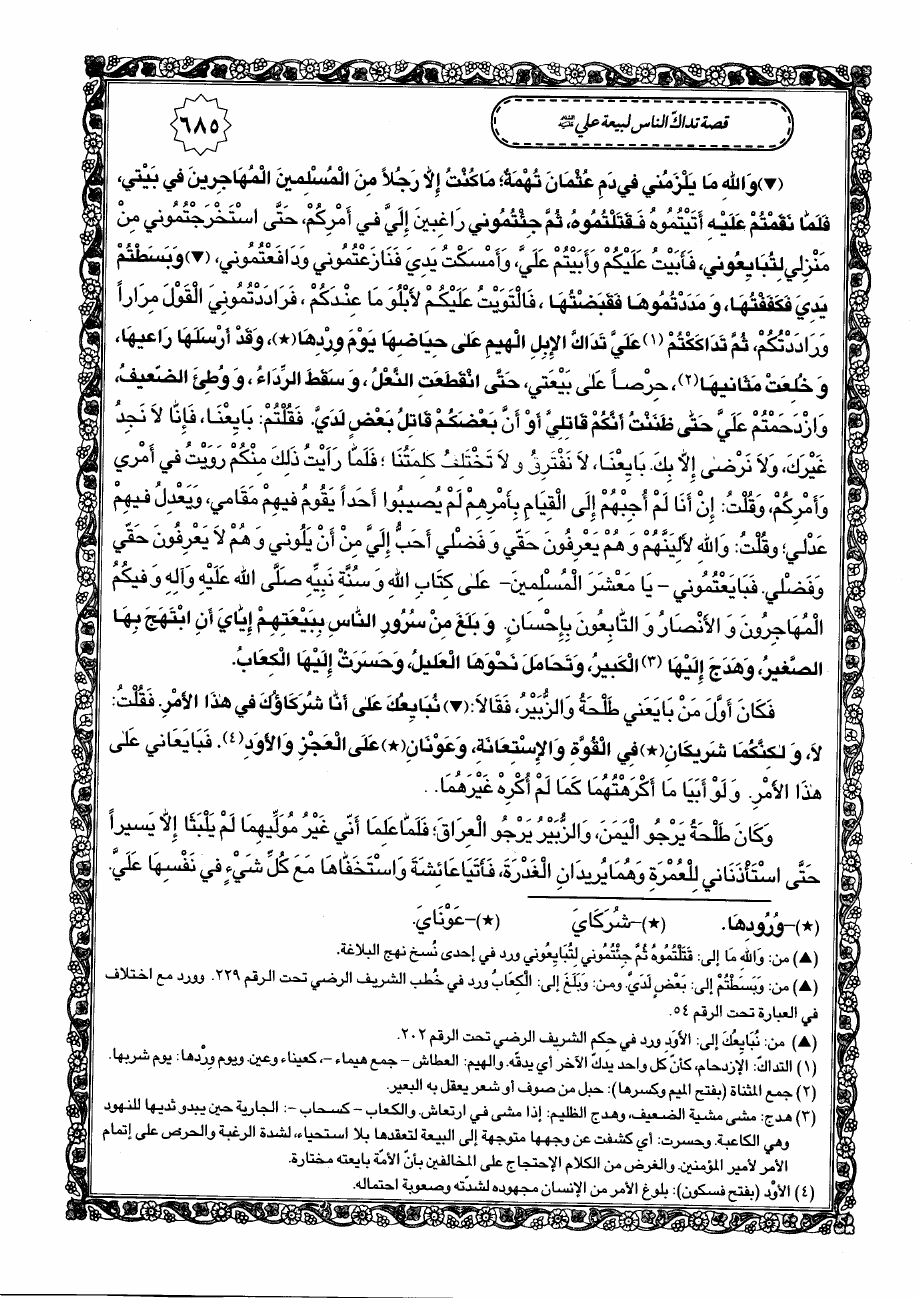 قصة تداكّ الناس لبيعة علي عليه السلام
٦٨٥
(▼) وَاللهِ مَا يَلْزَمُني في دَمِ عُثْمَانَ تُهْمَةٌ؛ مَا كُنْتُ إِلاّ رَجُلاً مِنَ الْمُسْلِمينَ الْمُهَاجِرينَ في بَيْتي،
فَلَمّا نَقَمْتُمْ عَلَيْهِ أَتَيْتُمُوهُ فَقَتَلْتُمُوهُ، ثُمَّ جِئْتُمُوني رَاغِبينَ إِلَيَّ في أَمْرِكُمْ، حَتَّى اسْتَخْرَجْتُمُوني مِنْ
مَنْزِلي لِتُبَايِعُوني، فَأَبَيْتُ عَلَيْكُمْ وَأَبَيْتُمْ عَلَيَّ، وَأَمْسَكْتُ يَدِي فَنَازَعْتُمُوني وَدَافَعْتُمُوني، (▼) وَبَسَطْتُمْ
يَدِيَ فَكَفَفْتُهَا، وَ مَدَدْتُمُوهَا فَقَبَضْتُهَا، فَالْتَوَيْتُ عَلَيْكُمْ لأَبْلُوَ مَا عِنْدَكُمْ، فَرَادَدْتُمُونِيَ الْقَوْلَ مِرَاراً
وَرَادَدْتُكُمْ، ثُمَّ تَدَاكَكْتُمْ (١) عَلَيَّ تَدَاكَّ الإِبِلِ الْهيمِ عَلى حِيَاضِهَا يَوْمَ وِرْدِهَا (★)، وَقَدْ أَرْسَلَهَا رَاعيهَا،
وَ خُلِعَتْ مَثَانيهَا (٢)، حِرْصاً عَلى بَيْعَتي، حَتَّى انْقَطَعَتِ النَّعْلُ، وَ سَقَطَ الرِّدَاءُ، وَ وُطِئَ الضّعيفُ،
وَازْدَحَمْتُمْ عَلَيَّ حَتّى ظَنَنْتُ أَنَّكُمْ قَاتِلِيَّ أَوْ أَنَّ بَعْضَكُمْ قَاتِلُ بَعْضٍ لَدَيَّ. فَقُلْتُمْ: بَايِعْنَا، فَإِنّا لاَ نَجِدُ
غَيْرَكَ، وَلاَ نَرْضى إِلاّ بِكَ. بَايِعْنَا، لاَ نَفْتَرِقُ وَ لاَ تَخْتَلِفُ كَلِمَتُنَا؛ فَلَمّا رَأَيْتُ ذلِكَ مِنْكُمْ رَوَيْتُ في أَمْري
وَأَمْرِكُمْ، وَقُلْتُ: إِنْ أَنَا لَمْ أُجِبْهُمْ إِلَى الْقِيَامِ بِأَمْرِهِمْ لَمْ يُصيبُوا أَحَداً يَقُومُ فيهِمْ مَقَامي، وَيَعْدِلُ فيهِمْ
عَدْلي؛ وَقُلْتُ: وَاللهِ لأَلِيَنَّهُمْ وَ هُمْ يَعْرِفُونَ حَقّي وَ فَضْلي أَحَبُّ إِلَيَّ مِنْ أَنْ يَلُوني وَ هُمْ لاَ يَعْرِفُونَ حَقّي
وَفَضْلي. فَبَايَعْتُمُوني - يَا مَعْشَرَ الْمُسْلِمينَ- عَلى كِتَابِ اللهِ وَ سُنَّةِ نَبِيِّهِ صَلَّى اللهُ عَلَيْهِ وَآلِهِ وَ فيكُمُ
الْمُهَاجِرُونَ وَ الأَنْصَارُ وَ التّابِعُونَ بِإِحْسَانٍ. وَ بَلَغَ مِنْ سُرُورِ النّاسِ بِبَيْعَتِهِمْ إِيّايَ أَنِ ابْتَهَجَ بِهَا
الصَّغيرُ، وَهَدَجَ إِلَيْهَا (٣) الْكَبيرُ، وَتَحَامَلَ نَحْوَهَا الْعَليلُ، وَحَسَرَتْ إِلَيْهَا الْكِعَابُ.
فَكَانَ أَوَّلَ مَنْ بَايَعَني طَلْحَةُ وَالزُّبَيْرُ، فَقَالاَ: (▼) نُبَايِعُكَ عَلى أَنّا شُرَكَاؤُكَ في هذَا الأَمْرِ. فَقُلْتُ:
لاَ، وَ لكِنَّكُمَا شَريكَانِ (★) فِي الْقُوَّةِ وَالاِسْتِعَانَةِ، وَعَوْنَانِ (★) عَلَى الْعَجْزِ وَالأَوَدِ (٤). فَبَايَعَاني عَلى
هذَا الأَمْرِ. وَ لَوْ أَبَيَا مَا أَكْرَهْتُهُمَا كَمَا لَمْ أُكْرِهْ غَيْرَهُمَا..
وَكَانَ طَلْحَةُ يَرْجُو الْيَمَنَ، وَالزُّبَيْرُ يَرْجُو الْعِرَاقَ؛ فَلَمّا عَلِمَا أَنّي غَيْرُ مُوَلّيهِمَا لَمْ يَلْبَثَا إِلاّ يَسيراً
حَتَّى اسْتَأْذَنَاني لِلْعُمْرَةِ وَهُمَا يُريدَانِ الْغَدْرَةَ، فَأَتَيَا عَائِشَةَ وَاسْتَخَفّاهَا مَعَ كُلِّ شَيْءٍ في نَفْسِهَا عَلَيَّ.
(★)-وُرُودِهَا. (★)-شُرَكَايَ (★)-عَوْنَايَ.
(▲) من: وَاللهِ مَا إلى: قَتَلْتُمُوهُ ثُمَّ جِئْتُمُوني لِتُبَايِعُوني ورد في إحدى نُسخ نهج البلاغة.
(▲) من: وَبَسَطْتُمْ إلى: بَعْضٍ لَدَيَّ. ومن: وَبَلَغَ إلى: الْكِعَابُ ورد في خُطب الشريف الرضي تحت الرقم ٢٢٩. وورد مع اختلاف
في العبارة تحت الرقم ٥٤.
(▲) من: نُبَايِعُكَ إلى: الأَوَدِ ورد في حِكم الشريف الرضي تحت الرقم ٢٠٢.
(١) التداكّ: الإزدحام، كأنّ كل واحد يدكّ الآخر أي يدقّه. والهيم: العطاش - جمع هيماء -، كعيناء وعين. ويوم وِرْدها: يوم شربها.
(٢) جمع المثناة (بفتح الميم وكسرها): حبل من صوف أو شعر يعقل به البعير.
(٣) هدج: مشى مشية الضعيف، وهدج الظليم: إذا مشى في ارتعاش. والكعاب - كسحاب -: الجارية حين يبدو ثديها للنهود
وهي الكاعبة. وحسرت: أي كشفت عن وجهها متوجهة إلى البيعة لتعقدها بلا استحياء، لشدة الرغبة والحرص على إتمام
الأمر لأمير المؤمنين. والغرض من الكلام الإحتجاج على المخالفين بأنّ الأمّة بايعته مختارة.
(٤) الأَوْد (بفتح فسكون): بلوغ الأمر من الإنسان مجهوده لشدّته وصعوبة احتماله.